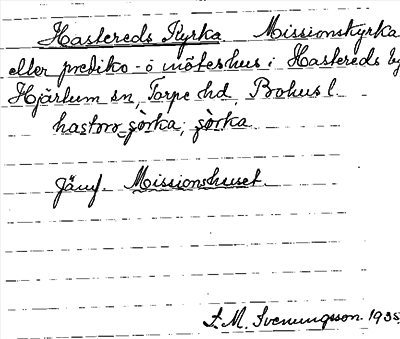 Hastereds Kyrka. Missionskyrka
eller prediko- o mötes hus i Hastereds by
Hjärtum sn, Torpe hd, Bohus l.
hastorö_şòrka; şòrka
Jämf. Missionshuset.
S. M. Svenungsson. 1935.